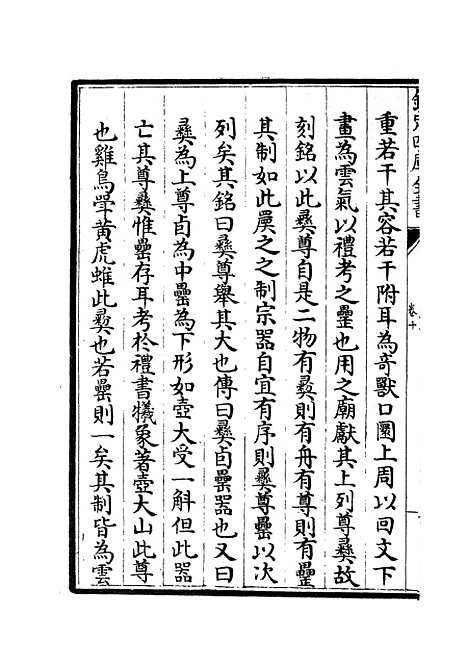 重若干其容若干附耳為竒獸口圜上周以回文下
畫為雲氣以禮考之罍也用之廟獻其上列尊彞故
刻銘以此彞尊自是二物有彞則有舟有尊則有罍
其制如此屢之之制宗器自宜有序則彞尊罍以次
列矣其銘曰彞尊舉其大也傳曰彞卣罍器也又曰
彞為上尊卣為中罍為下形如壺大受一斛但此器
亡其尊彞惟罍存耳考於禮書犧象著壺大山此尊
也雞鳥斝黄虎蜼此彞也若罍則一矣其制皆為雲
欽定四庫全書
卷十